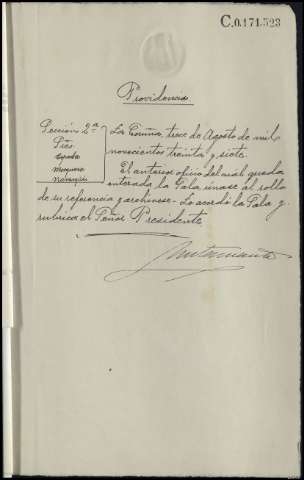 C.0.171.523
Providencia
Sección 2ª
Sres
España
La Coruña, trece de Agosto de mil
novecientos treinta y siete
El anterior oficio del cual queda
enterada la Sala únase al rollo
de su referencia y archívese = Lo acordó la Sala y
rubrica el Señor Presidente